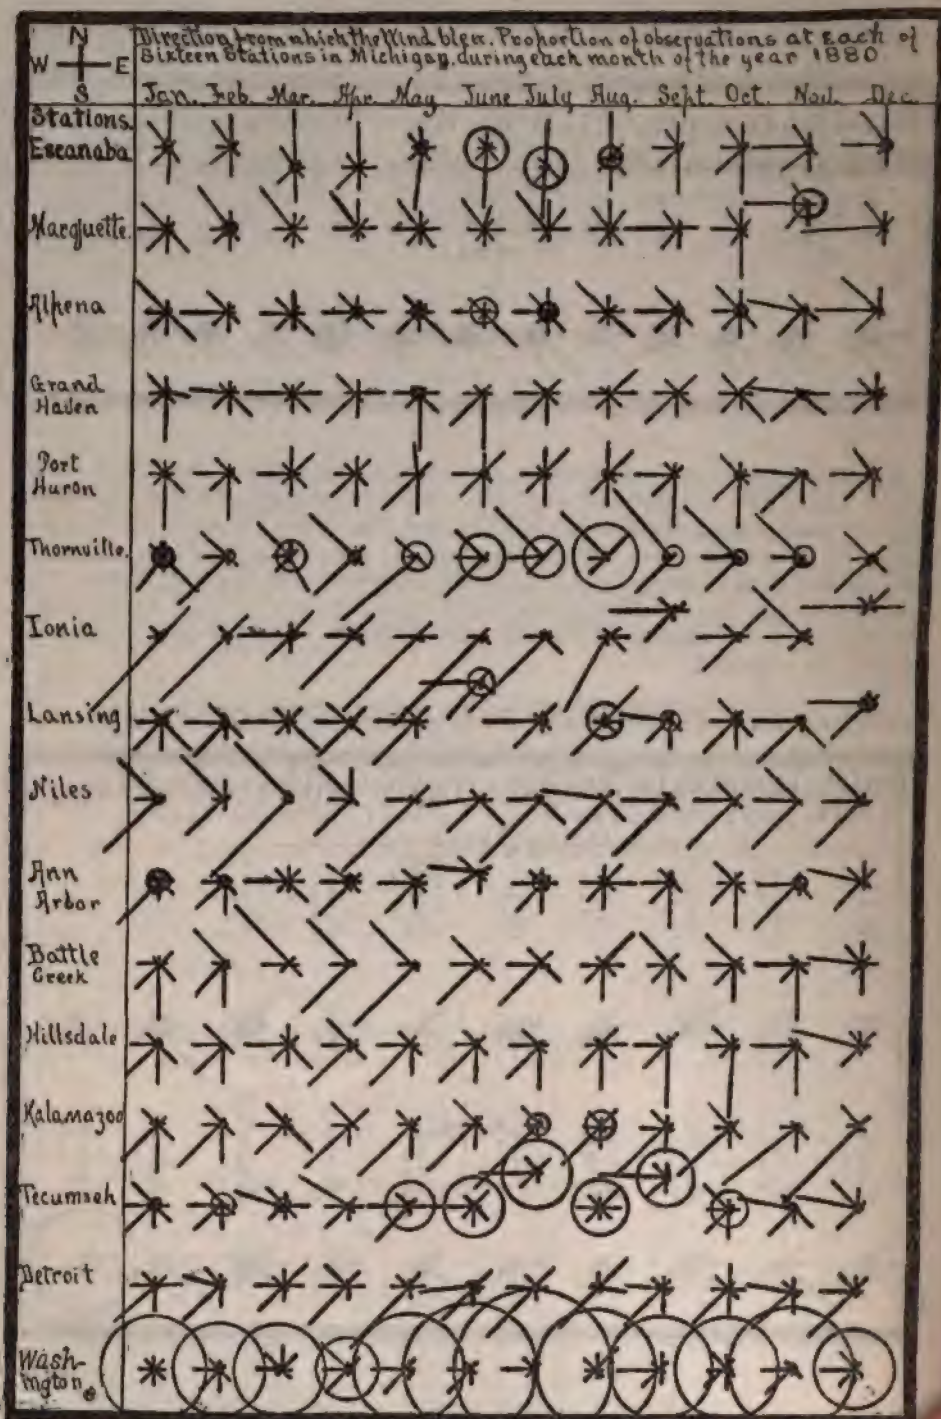 N
W E
S
Direction from which the Wind blew. Proportion of observations at Each of
Sixteen Stations in Michigan, during each month of the year 1880
Jan. Feb. Mar. Apr. May June July Aug. Sept. Oct. Nov. Dec.
Stations.
Escanaba
Marquette.
Alpena
Grand
Haven
Port
Huron
Thornville.
Ionia
Lansing
Niles
Ann
Arbor
Battle
Creek
Hillsdale
Kalamazoo
Tecumseh
Detroit
Wash-
ington